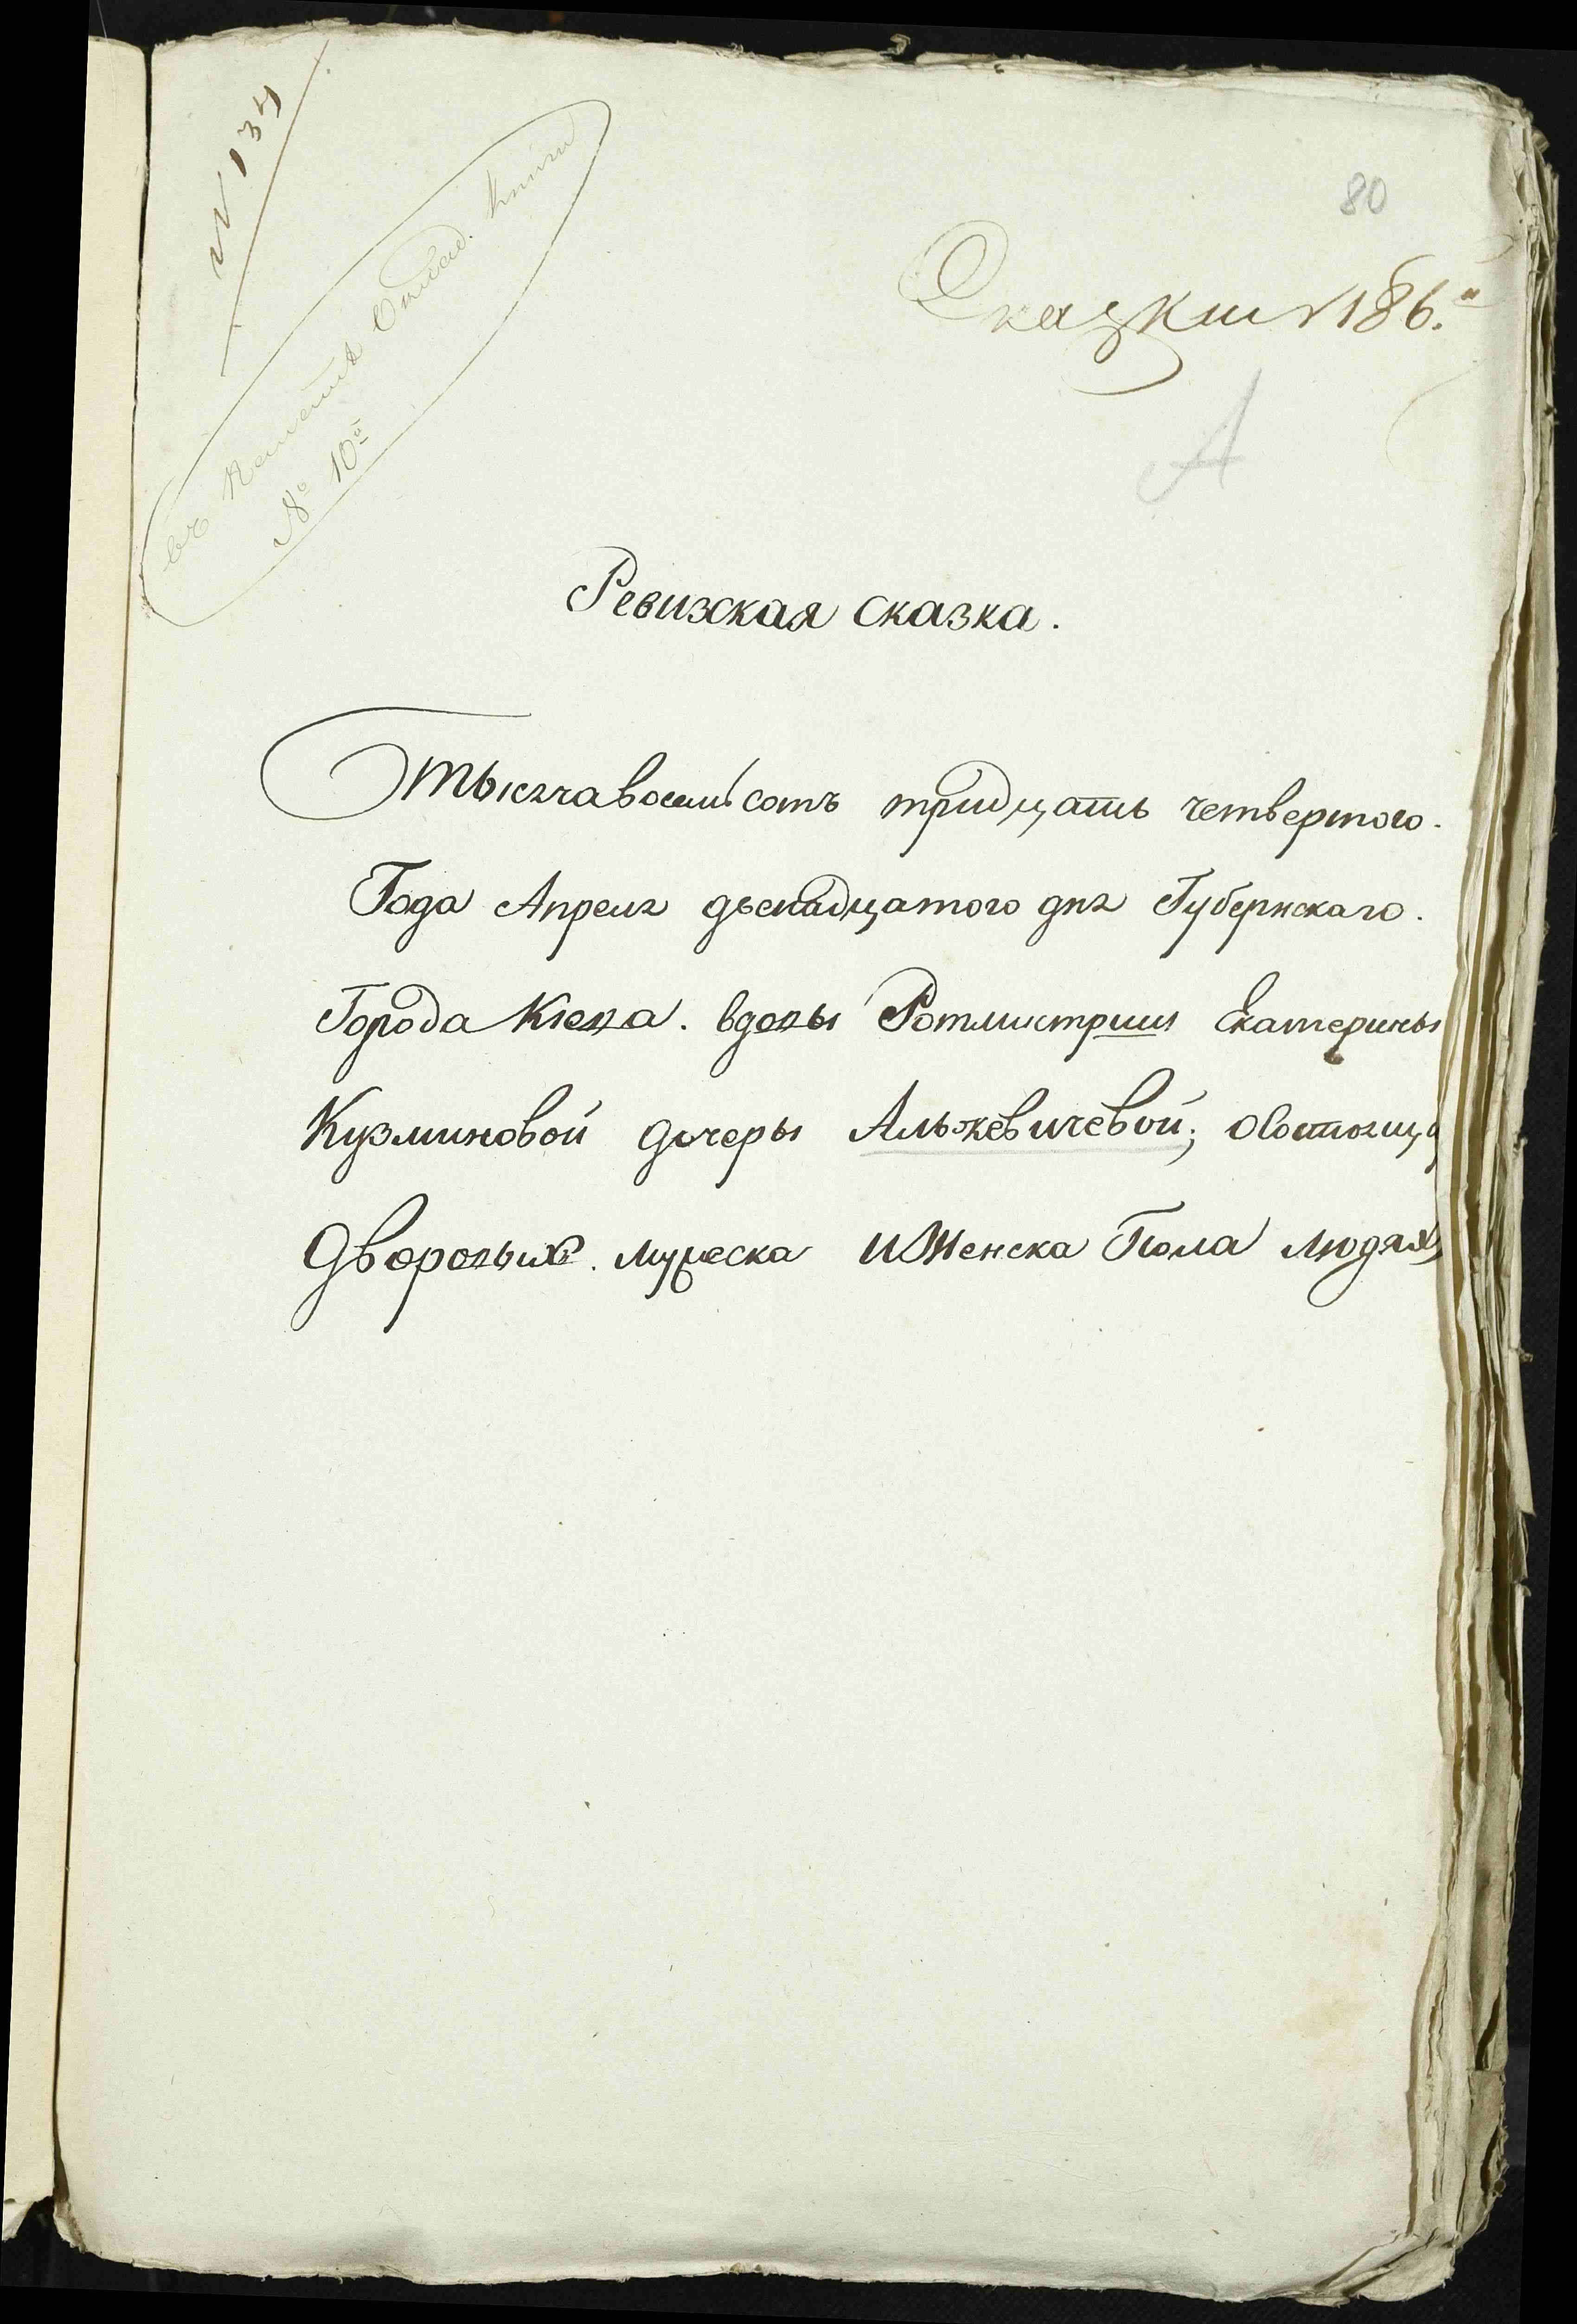 N 134
въ
книги
№ 10й
80
Сказки N 186.й
А
Ревизская сказка.
Тысяча восемьсотъ тридцать четвертого.
Года Апреля двенадцатого дня Губернскаго.
Города Киева. вдовы Ротмистрши Екатерины
Кузминовой дочеры Алькевичевой; Осостоящ
Дворовыхъ. мужеска и Женска Пола людях